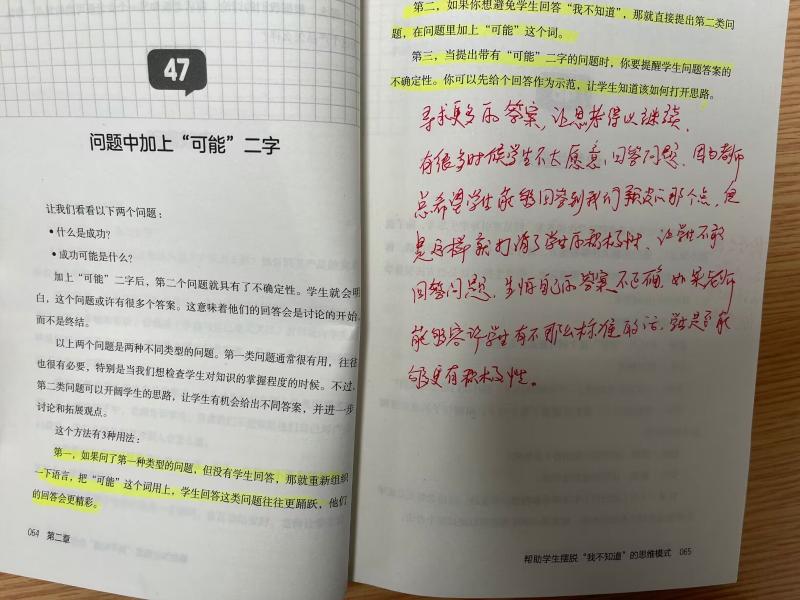 47
问题中加上“可能”二字
让我们看看以下两个问题：
• 什么是成功？
• 成功可能是什么？
加上“可能”二字后，第二个问题就具有了不确定性。学生就会明
白，这个问题或许有很多个答案。这意味着他们的回答会是讨论的开始，
而不是终结。
以上两个问题是两种不同类型的问题。第一类问题通常很有用，往往
也很有必要，特别是当我们想检查学生对知识的掌握程度的时候。不过，
第二类问题可以开阔学生的思路，让学生有机会给出不同答案，并进一步
讨论和拓展观点。
这个方法有3种用法：
第一，如果问了第一种类型的问题，但没有学生回答，那就重新组织
一下语言，把“可能”这个词用上，学生回答这类问题往往更踊跃，他们
的回答会更精彩。
064 第二章
第二，如果你想避免学生回答“我不知道”，那就直接提出第二类问
题，在问题里加上“可能”这个词。
第三，当提出带有“可能”二字的问题时，你要提醒学生问题答案的
不确定性。你可以先给个回答作为示范，让学生知道该如何打开思路。
寻求更多的答案，让思考得以继续。
有很多时候学生不太愿意回答问题，因为老师
总希望学生能够回答到我们预设的那个点，但
是这样就打消了学生的积极性，让学生不敢
回答问题，生怕自己的答案不正确，如果老师
能够容许学生有不那么标准的话，学生是否能
够更有积极性。
帮助学生摆脱“我不知道”的思维模式 065